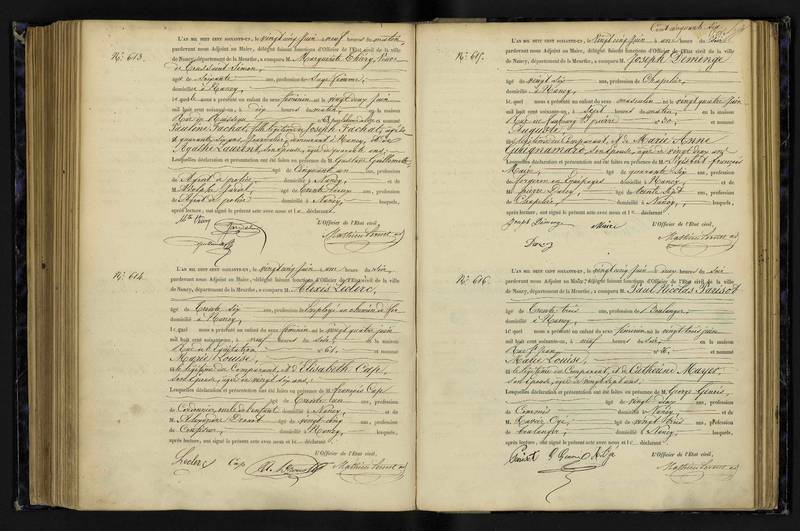 N.° 613.
L'AN MIL HUIT CENT SOIXANTE-UN, le vingt cinq juin neuf heures du matin,
pardevant nous Adjoint au Maire, délégué faisant fonctions d'Officier de l'Etat civil de la ville
de Nancy, département de la Meurthe, a comparu M. Marguerite Thiry,
âgé de soixante ans, profession de Sage femme,
domicilié à Nancy,
lequel nous a présenté un enfant du sexe féminin né le vingt deux juin
mil huit cent soixante-un, à dix heures du matin, en la maison
et nommé
Pauline Pachat, fille légitime de Joseph Pachat, âgé de
quarante domicilié à Nancy, et de
Agathe Laurent, son épouse, âgée de quarante ans.
Lesquelles déclaration et présentation ont été faites en présence de M. Gustave
âgé de cinquante ans, profession
de Agent de police domicilié à Nancy, et de
M. Adolphe âgé de trente deux ans, profession
de Agent de police domicilié à Nancy, lesquels,
après lecture, ont signé le présent acte avec nous et l déclarant
L'Officier de l'Etat civil,
N.° 614.
L'AN MIL HUIT CENT SOIXANTE-UN, le vingt cinq juin une heure du soir,
pardevant nous Adjoint au Maire, délégué faisant fonctions d'Officier de l'Etat civil de la ville
de Nancy, département de la Meurthe, a comparu M. Alexis Leclerc,
âgé de trente six ans, profession de Employé au chemin de fer
domicilié à Nancy,
lequel nous a présenté un enfant du sexe féminin né le vingt quatre juin
mil huit cent soixante-un, à neuf heures du soir, en la maison
Rue de l'Equitation n° 61, et nommé
Marie Louise,
fille légitime du Comparant, et d'Elisabeth Cap,
son épouse, âgée de vingt six ans.
Lesquelles déclaration et présentation ont été faites en présence de M. François Cap
âgé de trente un ans, profession
de Cordonnier, oncle de l'enfant domicilié à Nancy, et de
M. Alexandre âgé de vingt cinq ans, profession
de domicilié à Nancy, lesquels,
après lecture, ont signé le présent acte avec nous et l déclarant
L'Officier de l'Etat civil,
Leclerc Cap
Cent cinquante six
N.° 615.
L'AN MIL HUIT CENT SOIXANTE-UN, le vingt cinq juin à une heure du soir
pardevant nous Adjoint au Maire, délégué faisant fonctions d'Officier de l'Etat civil de la ville
de Nancy, département de la Meurthe, a comparu M. Joseph Demenge
âgé de vingt six ans, profession de Chapelier,
domicilié à Nancy,
lequel nous a présenté un enfant du sexe masculin né le vingt quatre juin
mil huit cent soixante-un, à sept heures du matin, en la maison
Rue du faubourg St pierre n° 20, et nommé
Auguste,
fils légitime du Comparant, et de Marie Anne
son épouse, âgée de vingt deux ans.
Lesquelles déclaration et présentation ont été faites en présence de M. François
Maire, âgé de quarante six ans, profession
de forgeron en équipages domicilié à Nancy, et de
M. Pierre âgé de trente sept ans, profession
de Chapelier, domicilié à Nancy, lesquels,
après lecture, ont signé le présent acte avec nous et l déclarant
L'Officier de l'Etat civil,
Joseph Demenge Maire
N.° 616.
L'AN MIL HUIT CENT SOIXANTE-UN, le vingt cinq juin à deux heures du soir
pardevant nous Adjoint au Maire, délégué faisant fonctions d'Officier de l'Etat civil de la ville
de Nancy, département de la Meurthe, a comparu M. Paul Nicolas Parisot
âgé de trente trois ans, profession de Boulanger,
domicilié à Nancy,
lequel nous a présenté un enfant du sexe féminin né le vingt trois juin
mil huit cent soixante-un, à neuf heures du soir, en la maison
Rue St Jean n° 16, et nommé
Marie Louise,
fille légitime du Comparant, et de Catherine Mayer,
son épouse, âgée de vingt sept ans.
Lesquelles déclaration et présentation ont été faites en présence de M. George
âgé de vingt deux ans, profession
de Commis domicilié à Nancy, et de
M. Xavier âgé de vingt trois ans, profession
de boulanger, domicilié à Nancy, lesquels,
après lecture, ont signé le présent acte avec nous et l déclarant
L'Officier de l'Etat civil,
Parisot